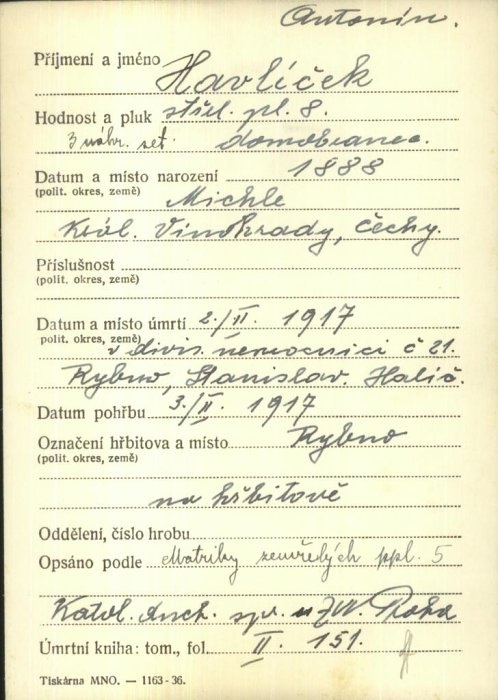 Antonín.
Příjmení a jméno Havlíček
Hodnost a pluk střel. pl. 8.
3 náhr. set. domobranec.
Datum a místo narození 1888
(polit. okres, země) Michle
Král. Vinohrady, Čechy.
Příslušnost
(polit. okres, země)
Datum a místo úmrtí 2./II. 1917
(polit. okres, země) v divis. nemocnici č 21.
Rybno, Stanislav. Halič.
Datum pohřbu 3./II. 1917
Označení hřbitova a místo Rybno
(polit. okres, země)
na hřbitově
Oddělení, číslo hrobu
Opsáno podle Matriky zemřelých ppl. 5
Katol. duch. spr. ZVV. Praha
Úmrtní kniha: tom., fol. II. 151.
Tiskárna MNO. — 1163-36.